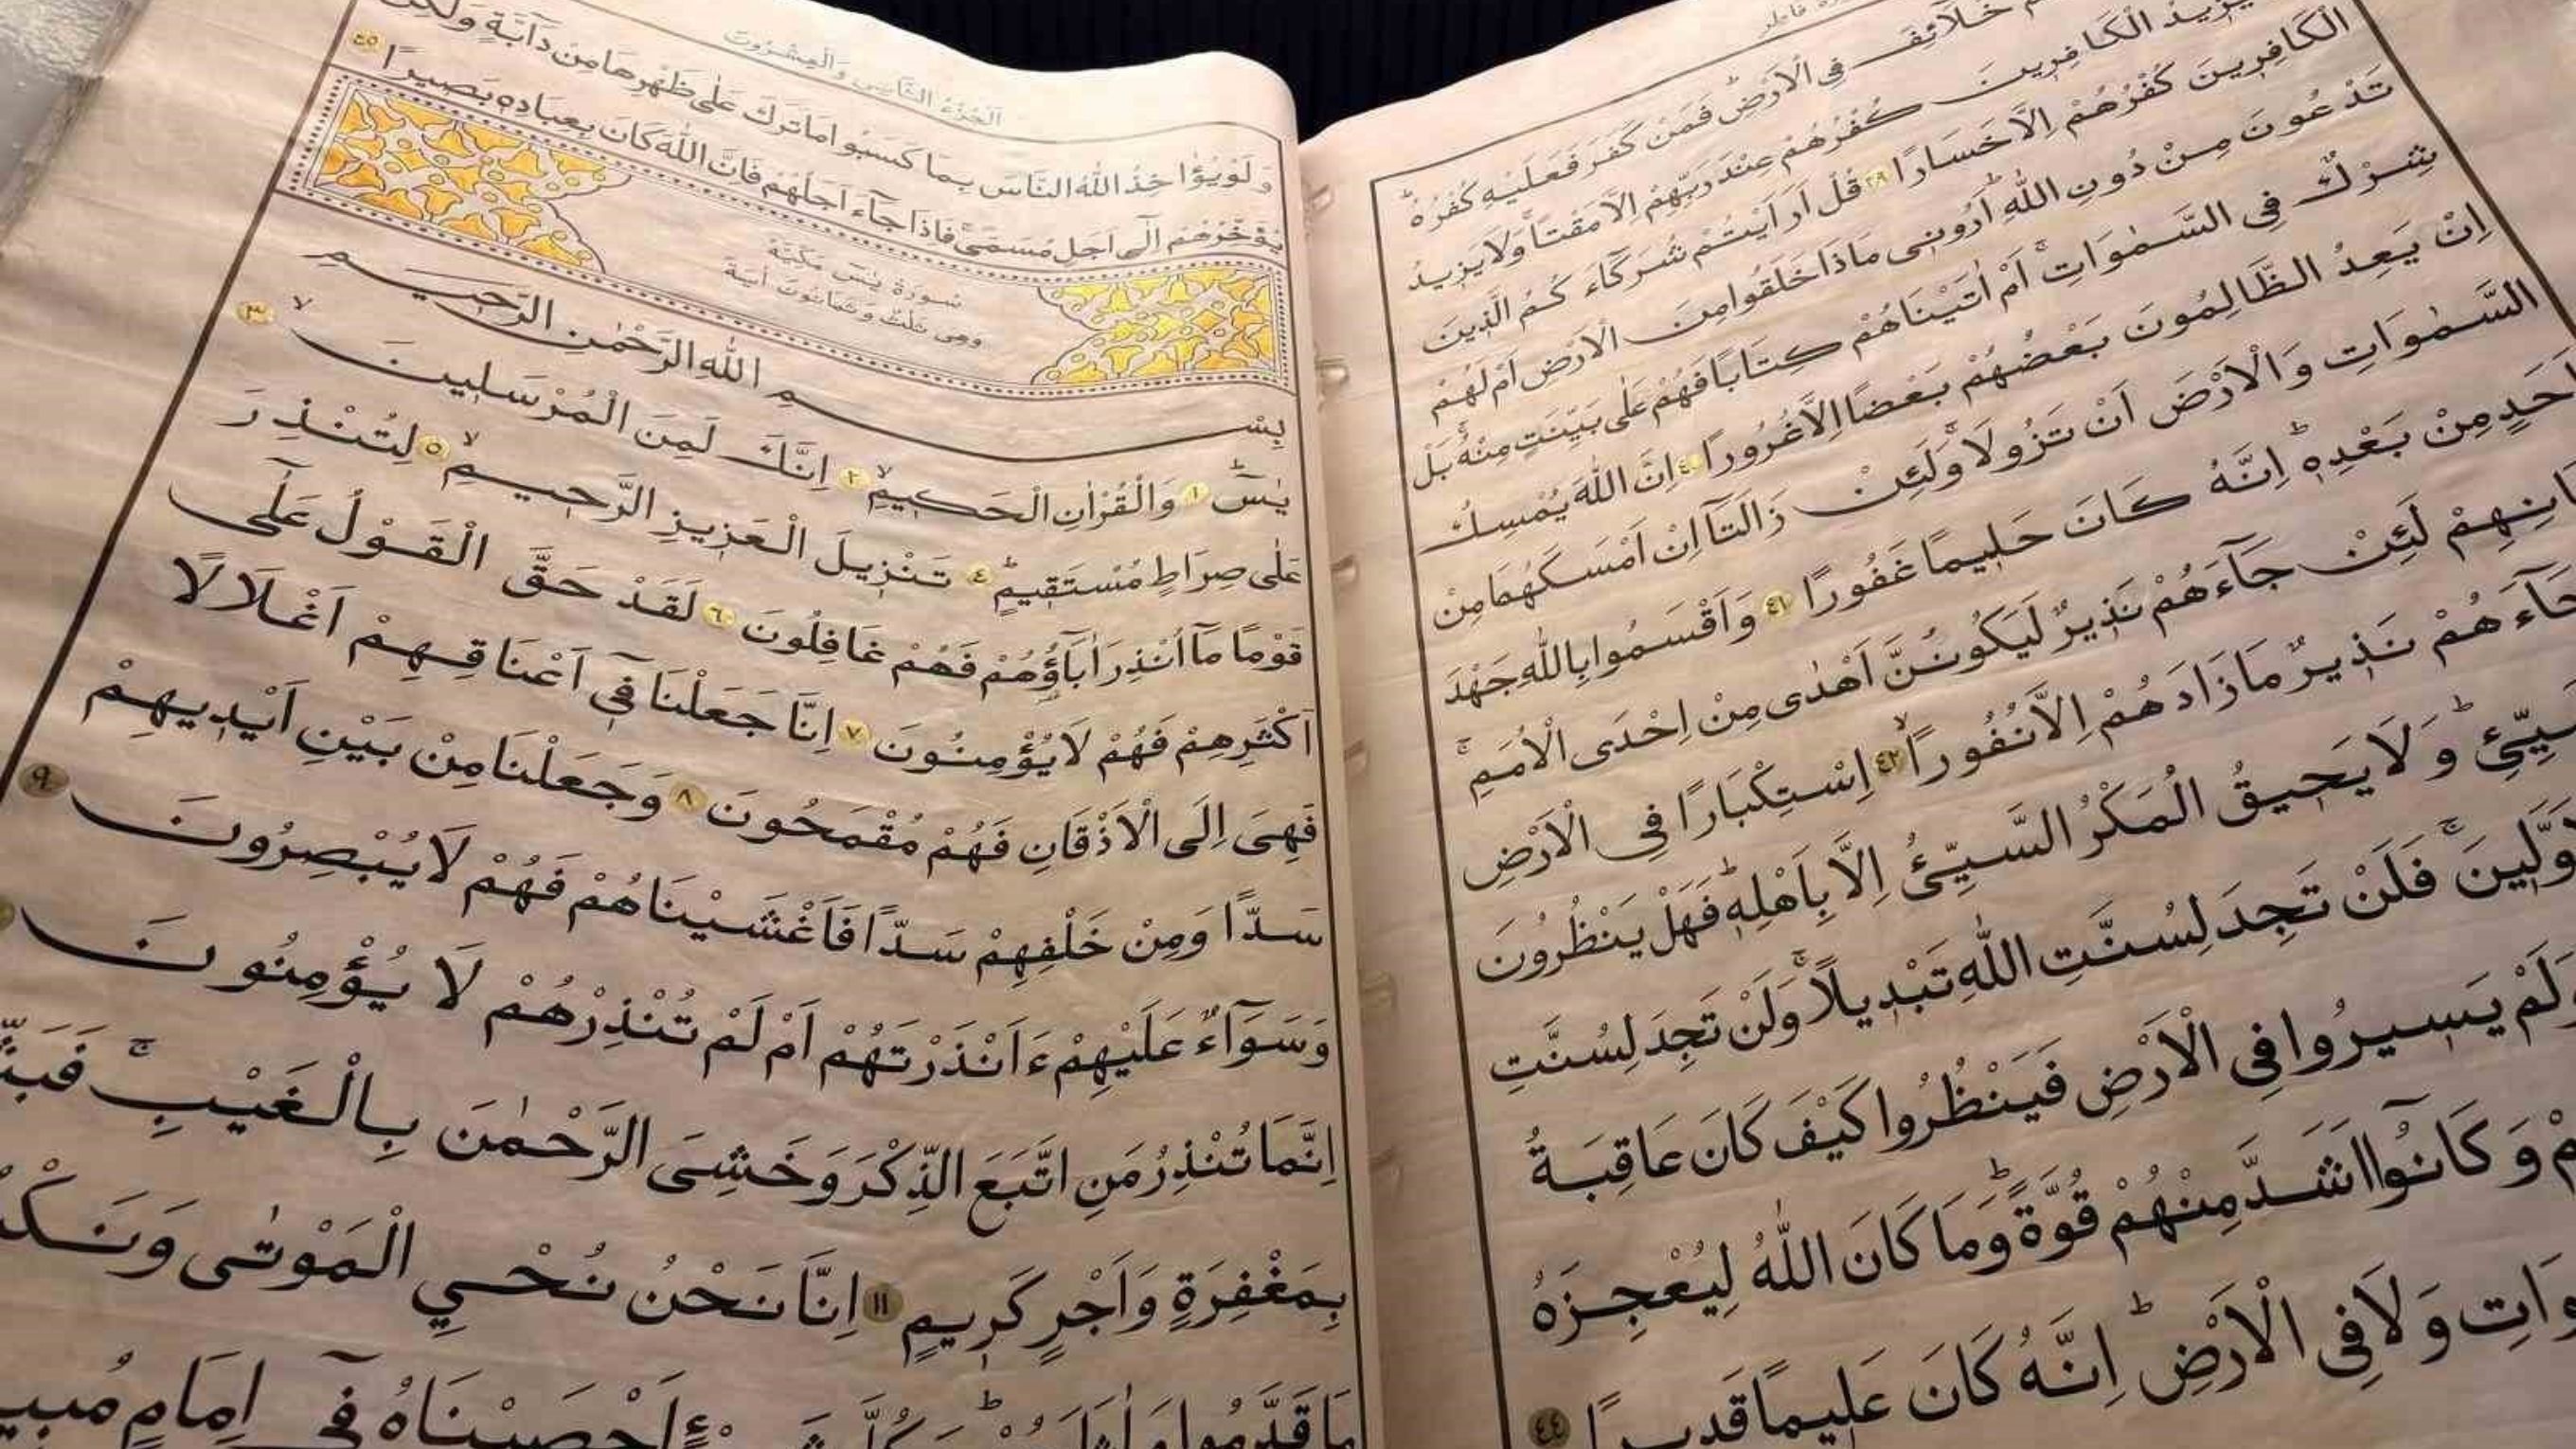 سورة فاطر
خَلَآئِفَ فِي الْاَرْضِ فَمَنْ كَفَرَ فَعَلَيْهِ كُفْرُهُ
يَزِيدُ الْكَافِرِينَ كُفْرُهُمْ عِنْدَ رَبِّهِمْ اِلَّا مَقْتًا وَلَا يَزِيدُ
الْكَافِرِينَ كُفْرُهُمْ اِلَّا خَسَارًا ٣٩ قُلْ اَرَاَيْتُمْ شُرَكَآءَ كُمُ الَّذِينَ
تَدْعُونَ مِنْ دُونِ اللّٰهِ اَرُونِى مَاذَا خَلَقُوا مِنَ الْاَرْضِ اَمْ لَهُمْ
شِرْكٌ فِي السَّمٰوَاتِ اَمْ اٰتَيْنَاهُمْ كِتَابًا فَهُمْ عَلٰى بَيِّنَتٍ مِنْهُ بَلْ
اِنْ يَعِدُ الظَّالِمُونَ بَعْضُهُمْ بَعْضًا اِلَّا غُرُورًا ٤٠ اِنَّ اللّٰهَ يُمْسِكُ
السَّمٰوَاتِ وَالْاَرْضَ اَنْ تَزُولَا وَلَئِنْ زَالَتَآ اِنْ اَمْسَكَهُمَا مِنْ
اَحَدٍ مِنْ بَعْدِهِ اِنَّهُ كَانَ حَلِيمًا غَفُورًا ٤١ وَاَقْسَمُوا بِاللّٰهِ جَهْدَ
لَئِنْ جَآءَهُمْ نَذِيرٌ لَيَكُونُنَّ اَهْدٰى مِنْ اِحْدَى الْاُمَمِ
جَآءَهُمْ نَذِيرٌ مَا زَادَهُمْ اِلَّا نُفُورًا ٤٢ اِسْتِكْبَارًا فِي الْاَرْضِ
وَلَا يَحِيقُ الْمَكْرُ السَّيِّئُ اِلَّا بِاَهْلِهِ فَهَلْ يَنْظُرُونَ
فَلَنْ تَجِدَ لِسُنَّتِ اللّٰهِ تَبْدِيلًا وَلَنْ تَجِدَ لِسُنَّتِ
يَسِيرُوا فِي الْاَرْضِ فَيَنْظُرُوا كَيْفَ كَانَ عَاقِبَةُ
وَكَانُوٓا اَشَدَّ مِنْهُمْ قُوَّةً وَمَا كَانَ اللّٰهُ لِيُعْجِزَهُ
وَلَا فِي الْاَرْضِ اِنَّهُ كَانَ عَلِيمًا قَدِيرًا ٤٤
اَلْجُزْءُ الثَّانِى وَالْعِشْرُونَ
وَلَوْ يُؤَاخِذُ اللّٰهُ النَّاسَ بِمَا كَسَبُوا مَا تَرَكَ عَلٰى ظَهْرِهَا مِنْ دَآبَّةٍ وَلٰكِنْ
يُؤَخِّرُهُمْ اِلٰٓى اَجَلٍ مُسَمًّى فَاِذَا جَآءَ اَجَلُهُمْ فَاِنَّ اللّٰهَ كَانَ بِعِبَادِهِ بَصِيرًا ٤٥
سُورَةُ يٰسٓ مَكِّيَّةٌ
وهى ثلث وثمانون اية
بِسْمِ اللّٰهِ الرَّحْمٰنِ الرَّحِيمِ
يٰسٓ ١ وَالْقُرْاٰنِ الْحَكِيمِ ٢ اِنَّكَ لَمِنَ الْمُرْسَلِينَ ٣
عَلٰى صِرَاطٍ مُسْتَقِيمٍ ٤ تَنْزِيلَ الْعَزِيزِ الرَّحِيمِ ٥ لِتُنْذِرَ
قَوْمًا مَآ اُنْذِرَ اٰبَآؤُهُمْ فَهُمْ غَافِلُونَ ٦ لَقَدْ حَقَّ الْقَوْلُ عَلٰٓى
اَكْثَرِهِمْ فَهُمْ لَا يُؤْمِنُونَ ٧ اِنَّا جَعَلْنَا فِيٓ اَعْنَاقِهِمْ اَغْلَالًا
فَهِيَ اِلَى الْاَذْقَانِ فَهُمْ مُقْمَحُونَ ٨ وَجَعَلْنَا مِنْ بَيْنِ اَيْدِيهِمْ
سَدًّا وَمِنْ خَلْفِهِمْ سَدًّا فَاَغْشَيْنَاهُمْ فَهُمْ لَا يُبْصِرُونَ ٩
وَسَوَآءٌ عَلَيْهِمْ ءَاَنْذَرْتَهُمْ اَمْ لَمْ تُنْذِرْهُمْ لَا يُؤْمِنُونَ
اِنَّمَا تُنْذِرُ مَنِ اتَّبَعَ الذِّكْرَ وَخَشِىَ الرَّحْمٰنَ بِالْغَيْبِ
بِمَغْفِرَةٍ وَاَجْرٍ كَرِيمٍ ١١ اِنَّا نَحْنُ نُحْيِي الْمَوْتٰى
مَا قَدَّمُوا اَحْصَيْنَاهُ فِيٓ اِمَامٍ